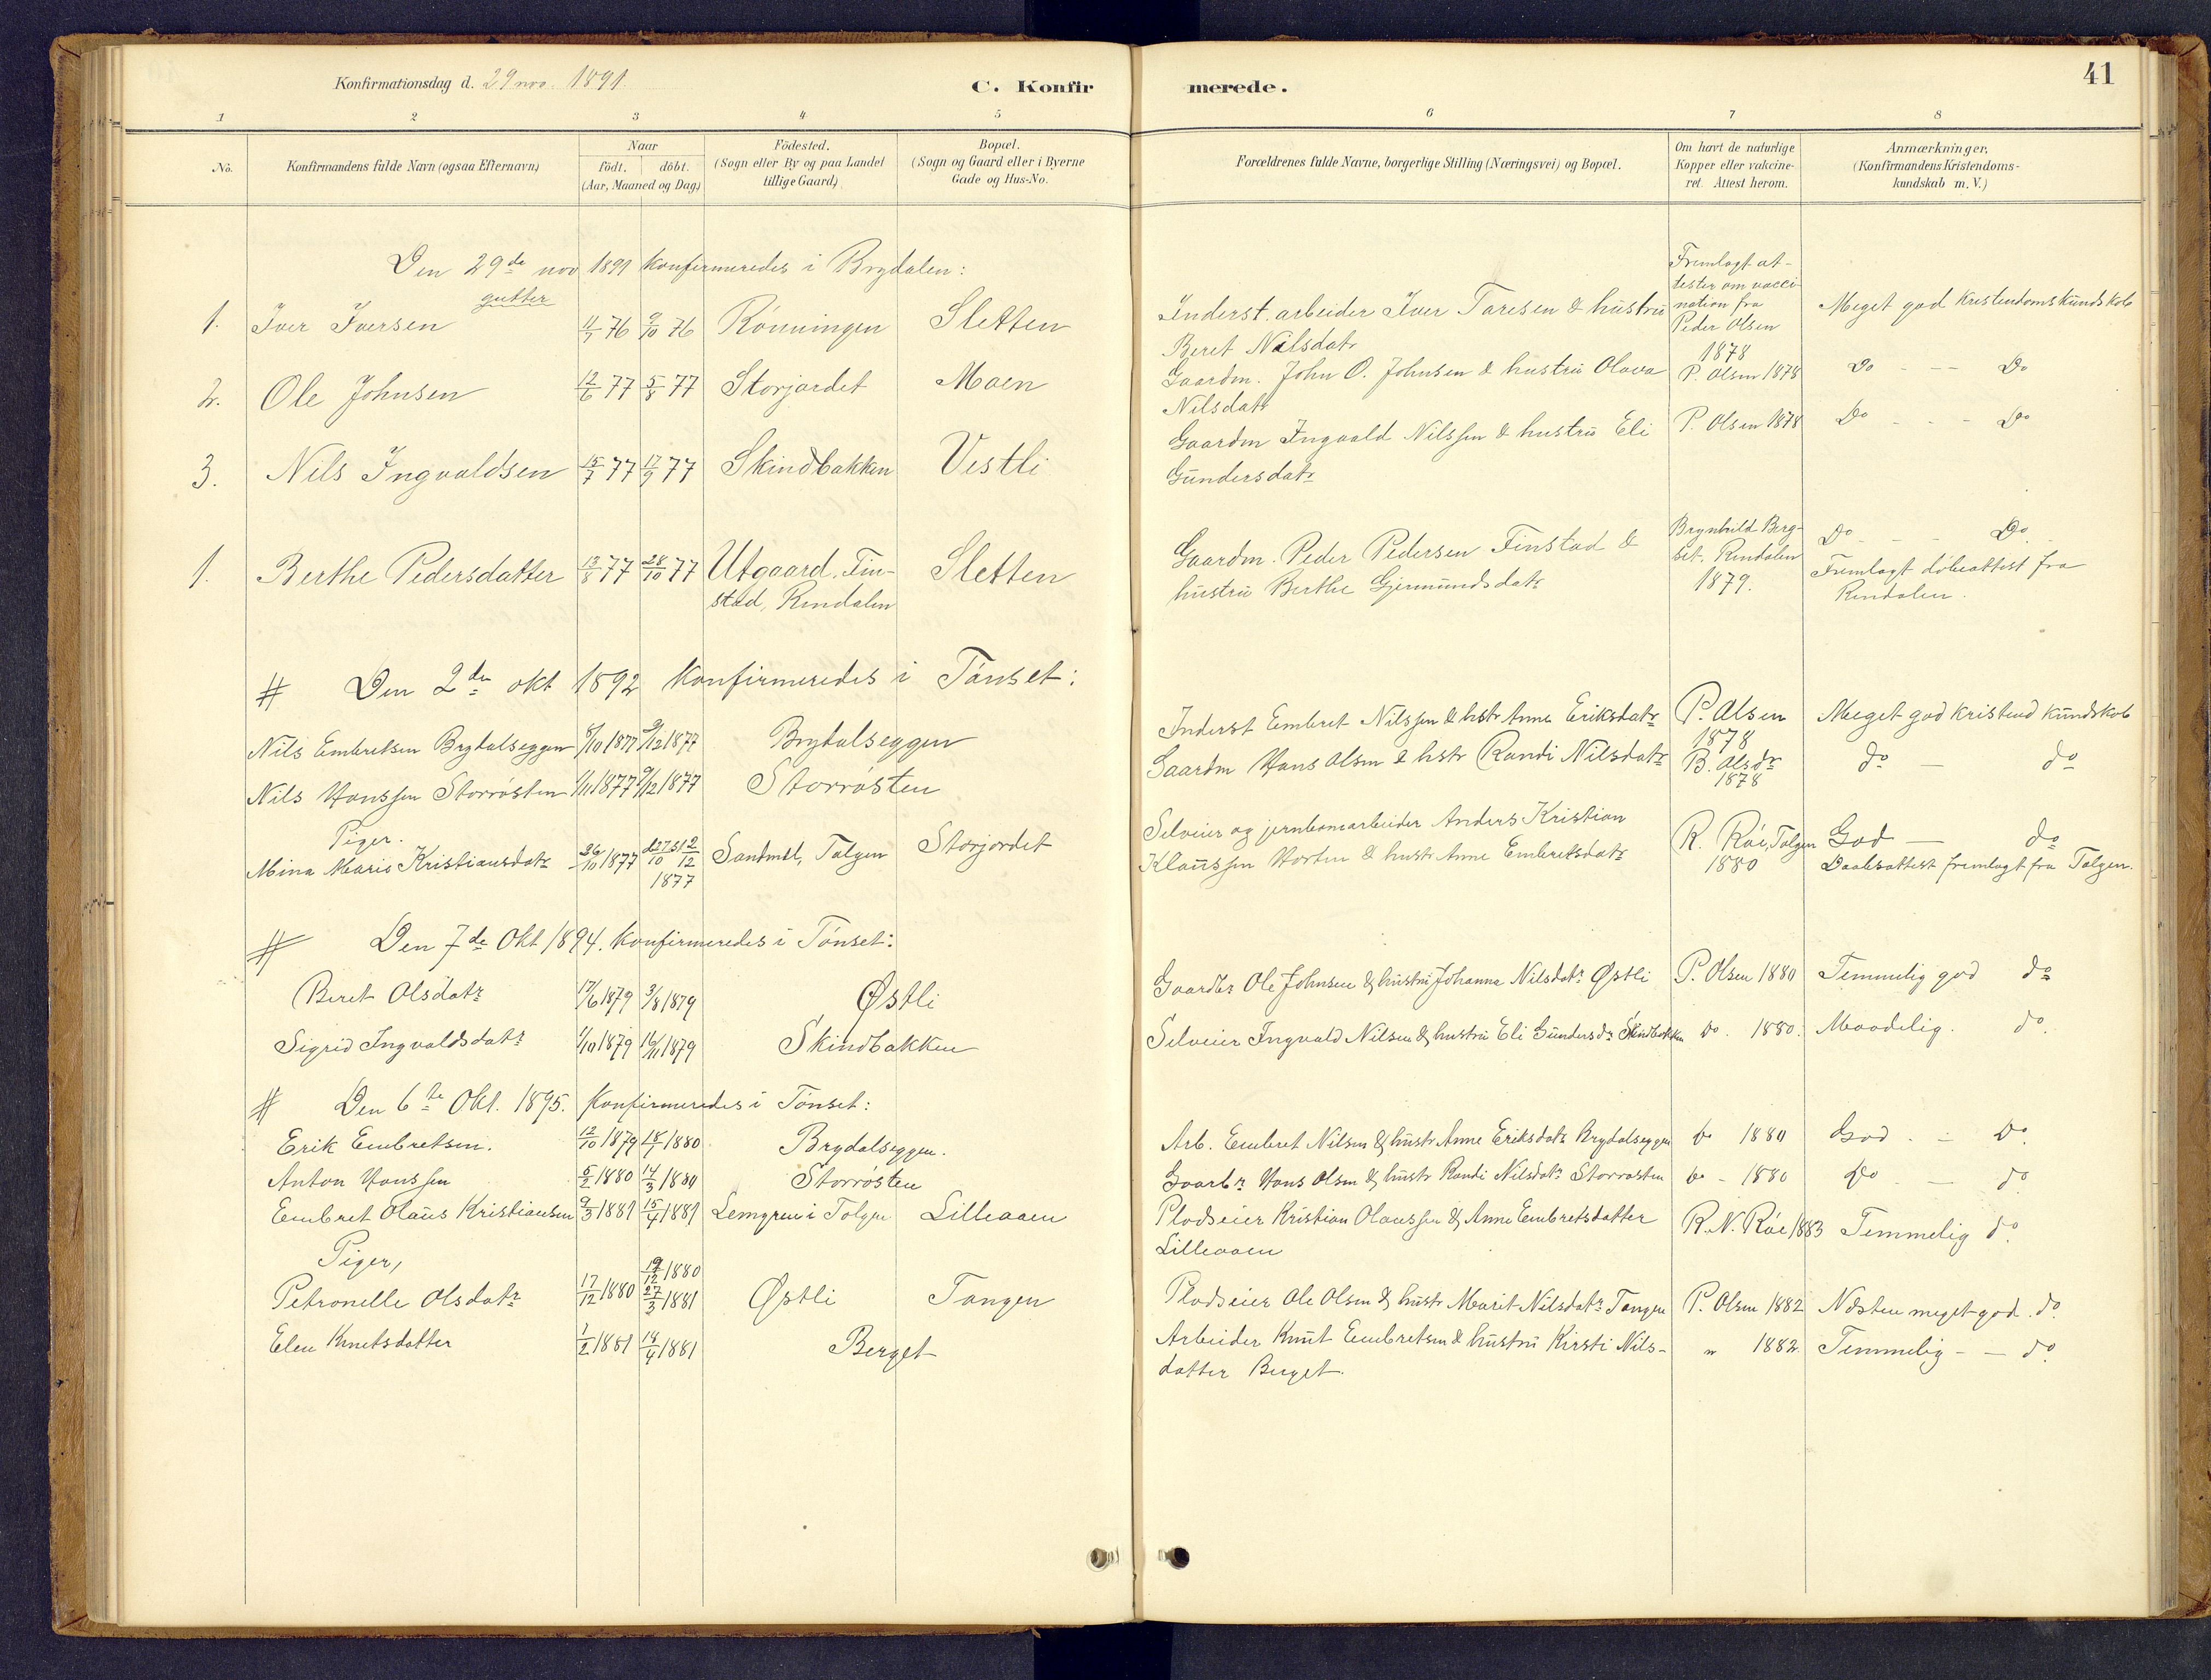 Konfirmationsdag d. 29 nov. 1891.
C. Konfirmerede.
41
1 2 3 4 5 6 7 8
No. Konfirmandens fulde Navn (ogsaa Efternavn) Naar födt. döbt. (Aar, Maaned og Dag) Födested. (Sogn eller By og paa Landet tillige Gaard) Bopæl. (Sogn og Gaard eller i Byerne Gade og Hus-No. Forældrenes fulde Navne, borgerlige Stilling (Næringsvei) og Bopæl. Om havt de naturlige Kopper eller vakcineret. Attest herom. Anmærkninger, (Konfirmandens Kristendomskundskab m. V.)
Den 29de nov 1891 konfirmeredes i Brydalen:
gutter
1. Iver Iversen 76 76 Rönningen Sletten Inderst. arbeider Iver Taresen & hustru Beret Nilsdatr Fremlagt attester om vaccination fra Peder Olsen 1878 Meget god Kristendomskundskab
2. Ole Johnsen 12/6 77 5/8 77 Storjordet Moen Gaardm. John O. Johnsen & hustru Olava Nilsdatr P. Olsen 1878 Do - - Do
3. Nils Ingvaldsen 15/7 77 17/9 77 Skindbakken Vestli Gaardm Ingvald Nilssen & hustru Eli Gundersdatr P. Olsen 1878 Do - - Do
1. Berthe Pedersdatter 13/8 77 28/10 77 Utgaard, Finstad, Rendalen Sletten Gaardm. Peder Pedersen Finstad & hustru Berthe Gjermundsdatr Brynhild Bergset. Rendalen 1879. Do - - Do Fremlagt döbeattest fra Rendalen.
# Den 2den okt 1892 konfirmeredes i Tönset:
Nils Embretsen Brydalseggen 8/10 1877 9/12 1877 Brydalseggen Inderst Embret Nilssen & hstr Anne Eriksdatr P. Olsen 1878 Meget god kristend kundskab
Nils Hanssen Storrösten 1/11 1877 9/12 1877 Storrösten Gaardm Hans Olsen & hstr Randi Nilsdatr B. Olsdr 1878 do - do
Piger.
Mina Marie Kristiansdatr 26/10 1877 1877 Sandmel, Tolgen Storjordet Selveier og jernbanearbeider Anders Kristian Klaussen Horten & hustr Anne Embretsdatr R. Röe, Tolgen 1880 God - do Daabsattest fremlagt fra Tolgen.
# Den 7de Okt 1894. konfirmeredes i Tönset:
Beret Olsdatr 17/6 1879 3/8 1879 Østli Gaardbr Ole Johnsen & hustru Johanna Nilsdatr Østli P. Olsen 1880 Temmelig god do
Sigrid Ingvaldsdatr 1/10 1879 16/11 1879 Skindbakken Selveier Ingvald Nilsen & hustru Eli Gundersdr Skindbakken do. 1880. Maadelig. do.
# Den 6te Okt. 1895. Konfirmeredes i Tönset:
Erik Embretsen. 12/10 1879 18/1 1880 Brydalseggen. Arb. Embret Nilsen & hustr Anne Eriksdatr Brydalseggen do 1880 God. - Do
Anton Hanssen 5/2 1880 14/3 1880 Storrösten Gaarbr Hans Olsen & hustr Randi Nilsdatr Storrösten do - 1880 Do - do
Embret Olaus Kristiansen 9/3 1881 15/4 1881 Lemgren i Tolgen Lilleaaen Plodseier Kristian Olaussen & Anne Embretsdatter Lilleaaen R. N. Röe 1883 Temmelig do.
Piger,
Petronelle Olsdatr 17/12 1880 19/12 1880 27/3 1881 Østli Tangen Plodseier Ole Olsen & hustr Marit Nilsdatr Tangen P. Olsen 1882 Næsten meget god. do.
Elen Knutsdatter 1/2 1881 14/4 1881 Berget Arbeider Knut Embretsen & hustru Kirsti Nilsdatter Berget. " 1882. Temmelig - - do.